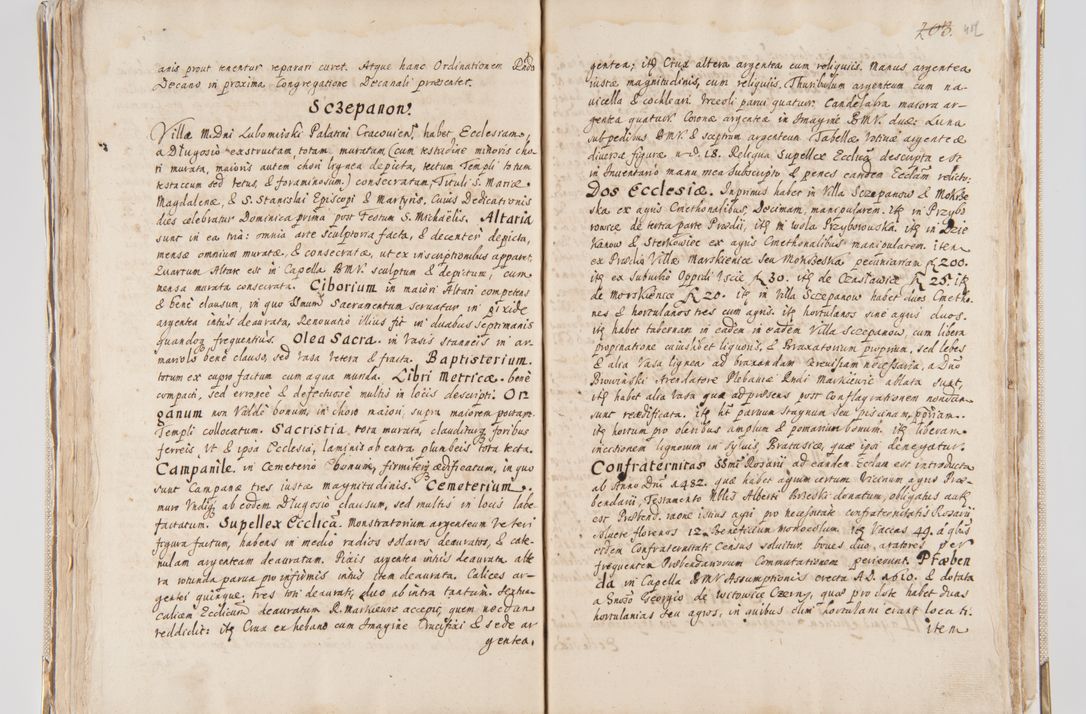 anis prout tenentur reparari curet. Atque hanc Ordinationem Rndo
Decano in proxima Congregatione Decanali præsentet.
Sczepanow.
Villa M. Dni Lubomirski Palatini Cracovien, habet Ecclesiam,
a Długosio exstructam totam muratam (cum testudine minoris cho-
ri murata, maioris autem chori lignea depicta, tectum Templi totum
testaceum sed vetus, & foraminosum.) consecratam, Tituli S. Mariæ
Magdalenæ, & S. Stanislai Episcopi & Martyris, Cuius Dedicationis
dies celebratur Dominica prima post Festum S. Michaëlis. Altaria
sunt in ea tria: omnia arte sculptoria facta, & decenter depicta,
mensæ omnium muratæ, & consecratæ, ut ex inscriptionibus apparet.
Quartum Altare est in Capella B.M.V. sculptum & depictum, cum
mensa murata consecrata. Ciborium in maiori Altari competens
& bene clausum, in quo Smum Sacramentum servatur in pixide
argentea intus deaurata, Renovatio illius fit in duabus septimanis
quandoq frequentius. Olea Sacra in Vasis stanneis in ar-
mariolo bene clauso, sed vasa vetera & fracta. Baptisterium
totum ex cupro factum cum aqua munda. Libri Metricæ bene
compacti, sed erronee & defectuose multis in locis descripti. Or-
ganum non valde bonum, in choro maiori, supra maiorem portam
Templi collocatum. Sacristia tota murata, clauditurq foribus
ferreis, Ut & ipsa Ecclesia, laminis ab extra plumbeis tota tecta.
Campanile in Cemeterio bonum, firmiterq ædificatum, in quo
sunt Campanæ tres iustæ magnitudinis. Cemeterium
muro Undiq ab eodem Długosio clausum, sed multis in locis labe-
factatum. Supellex Ecclica. Monstratorium argenteum veteri
figura factum, habens in medio radios solares deauratos, & cate-
nulam argenteam deauratam. Pixis argentea intus deaurata, alte-
ra rotunda parva pro infirmis intus item deaurata. Calices ar-
gentei quinque, tres toti deaurati, duo ab intra tantum. Sextum
calicem Ecclicum deauratum R. Markiewic accepit, quem necdum
reddidit: itq Crux ex hebano cum Imagine Crucifixi & sede ar-
gentea,
203. 412
gentea; itq Crux altera argentea cum reliquiis. Manus argentea
iustæ magnitudinis, cum reliquiis. Thuribulum argenteum cum na-
vicella & cochleari. Urceoli parvi quatuor. Candelabra maiora ar-
gentea quatuor. Coronæ argenteæ in Imagine B.M.V. duæ: Luna
sub pedibus B.M.V. & sceptrum argenteum. Tabellæ Votivæ argenteæ
diversæ figuræ no. 18. Reliqua Supellex Ecclica descripta est
in Inventario manu mea subscripto, & penes eandem Ecclam relicto.
Dos Ecclesiæ. Inprimis habet in Villa Sczepanow & Mokrze-
ska ex agris Cmethonalibus, Decimam manipularem. itq in Przybo-
rowice de tertia parte Prædii, itq in Wola Przyborowska. itq in Dzie-
kanow & Sterkowiec ex agris Cmethonalibus manipularem. item
ex Prædio Villæ Marskienice seu Mokrzeska pecuniariam fl 200.
itq ex suburbio Oppidi Uscie fl 30. itq de Czaslawice fl 25. itq
de Morskienice fl 20. itq in Villa Sczepanow habet duos Cmetho-
nes & hortulanos tres cum agris. itq hortulanos sine agris duos.
itq habet tabernam in eadem in eadem Villa Sczepanow, cum libera
propinatione cuiuslibet liquoris, & Braxatorium proprium, sed lebes
& alia vasa lignea ad braxandam cerevisiam necessaria, a Dno
Arendatore Plebaniæ Rndi Markiewic ablata sunt,
itq habet alia vasa quæ ad præsens post Conflagrationem nondum
sunt reædificata. itq ht parvum stagnum seu piscinam,
itq hortum pro oleribus amplum & pomarium bonum. itq liberam
incisionem lignorum in sylvis, Bratasiæ, quæ ipsi denegatur.
Confraternitas SSmi Rosarii ad eandem Ecclam est introducta
ab Anno Dni 1482. quæ habet agrum certum vicinum agris Præ-
bendarii, Testamento Nblis Alberti Brzeski donatum, obligatus autq
est Præbend. raone istius agri pro necessitate confraternitatis Rosarii
solvere florenos 12. Beneficium monocolum. itq Vaccas 49. a quibus
eidem Confraternitati Census solvitur. boves duo, aratores per
frequentem Præbendariorum Commutationem perierunt. Præben-
da in Capella B.M.V. Assumptionis erecta A.D. 1610. & dotata
a Gnoso Georgio de Witowice Czerny, quæ pro dote habet duas
hortulanias seu agros, in quibus olim hortulani erant locati.
item